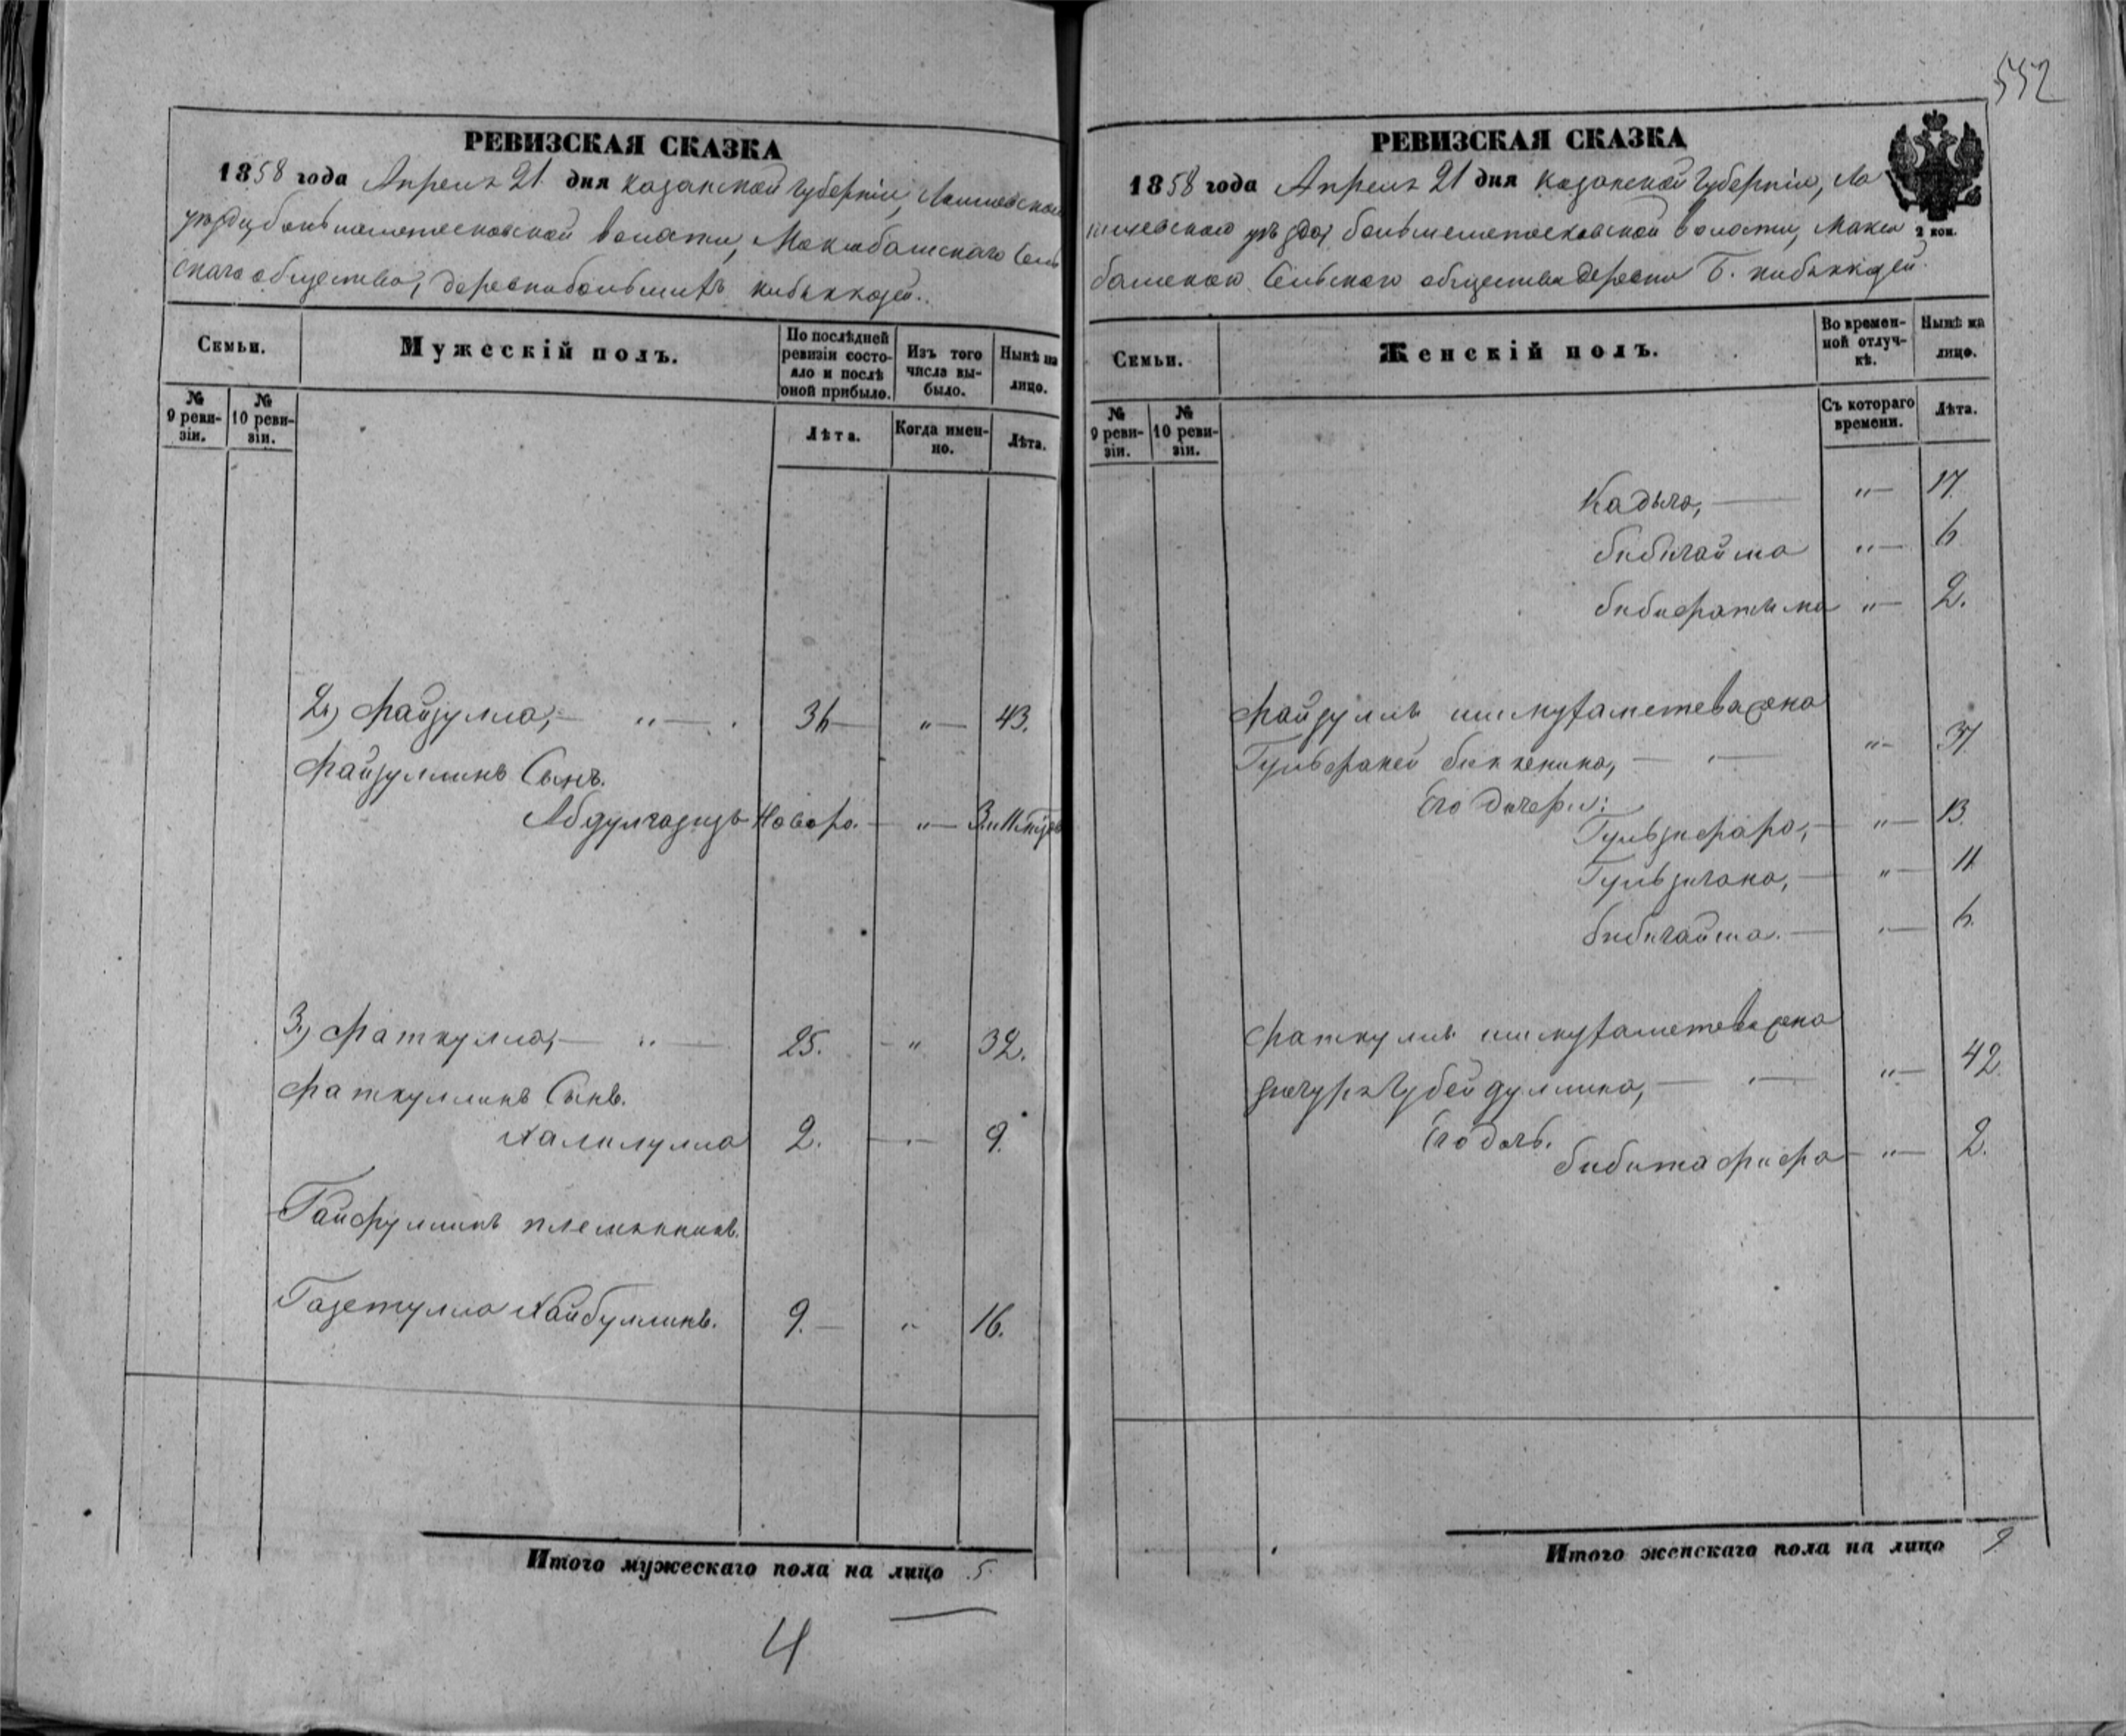 552
РЕВИЗСКАЯ СКАЗКА
1858 года Апреля 21 дня Казанской Губерніи, Лаишевскаго
уѣзда большеметесковской волости, Макибашскаго Сель
скаго общества, деревни большихъ кибяккозей.
Семьи.
Мужескій полъ.
По послѣдней ревизіи состояло и послѣ оной прибыло.
Изъ того числа выбыло.
Нынѣ на лицо.
№ 9 ревизіи.
№ 10 ревизіи.
Лѣта.
Когда именно.
Лѣта.
2.) Файзулла, — „ — 36 — „ — 43.
Файзуллинъ Сынъ.
Абдулгазизъ Новоро. — „ — 3. и
3.) Фаткулла, — „ — 25. — „ 32.
Фаткуллинъ Сынъ.
Халилулла 2. — „ — 9.
Гайфуллинъ племянникъ.
Газетулла Хайбуллинъ. 9. — „ 16.
Итого мужескаго пола на лицо 5.
4
РЕВИЗСКАЯ СКАЗКА
2 коп.
1858 года Апреля 21 дня Казанской Губерніи, Ла
ишевскаго уѣзда, большеметесковской Волости, Маки
башскаго Сельскаго общества деревни Б. кибяккозей.
Семьи.
Женскій полъ.
Во временной отлучкѣ.
Нынѣ на лицо.
№ 9 ревизіи.
№ 10 ревизіи.
Съ котораго времени.
Лѣта.
Кадыча, — „ — 17.
бибигайша „ — 6
бибифатима „ — 2.
Файзуллы ишмухаметева жена
Гульфаней биккенина, — „ — „ — 37
Его дочери:
Гульзифара, — „ — 13.
Гульзигана, — „ — 11.
бибигайша. — „ — 6.
Фаткуллы ишмухаметева жена
Губейдуллина, — „ — „ — 42.
Его дочь.
2.
Итого женскаго пола на лицо 9